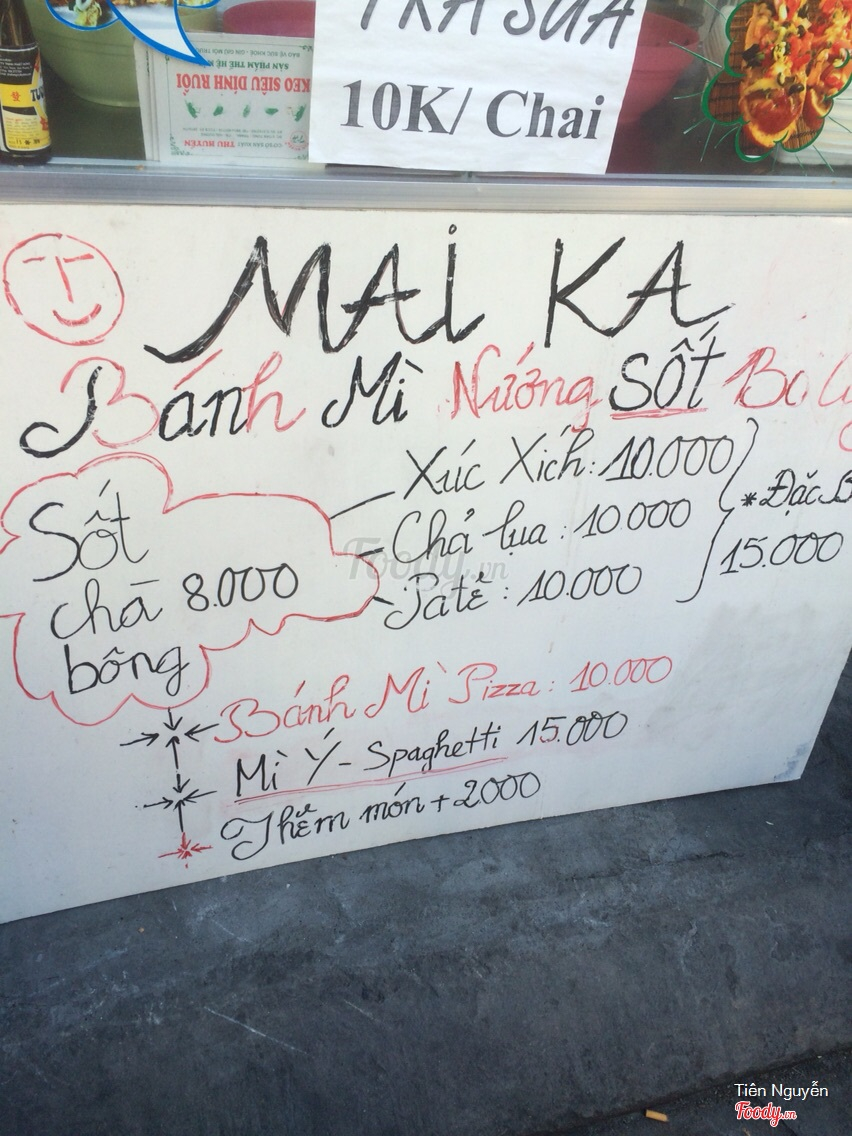 TRÀ SỮA
10K/ Chai
KEO SIÊU DÍNH RUỒI
SẢN PHẨM THẾ HỆ
THU HUYỀN
MAI KA
Bánh Mì Nướng SỐT Bo
Sốt
chà 8.000
bông
Xúc Xích: 10.000
Chả lụa : 10.000
Patê : 10.000
*Đặc B
15.000
Bánh Mì Pizza : 10.000
Mì Ý - Spaghetti 15.000
Thêm món + 2000
Foody.vn
Tiên Nguyễn
Foody.vn